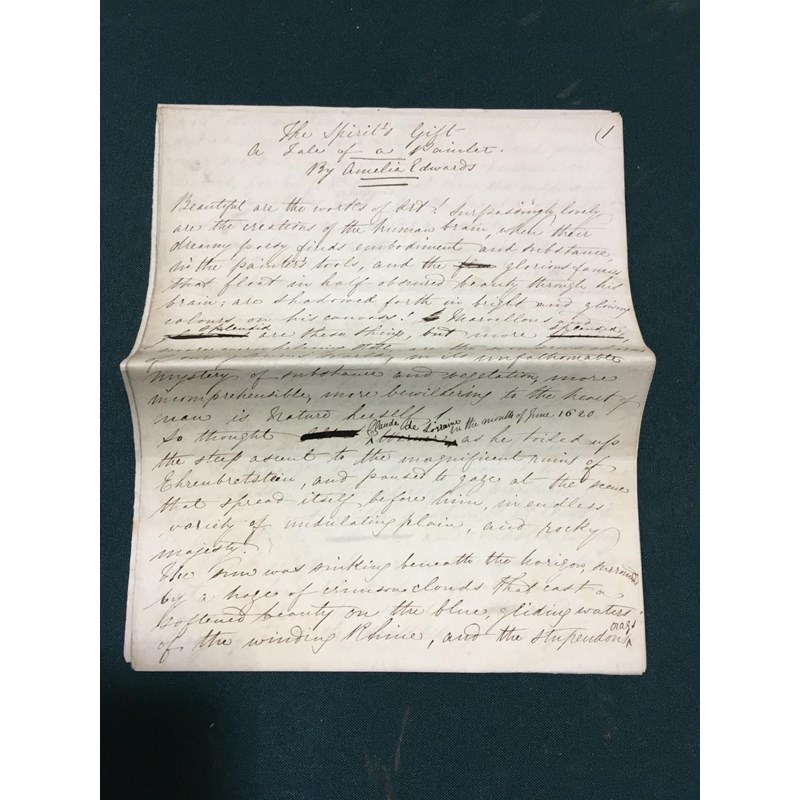 (1
The Spirit's Gift
A Tale of a Painter.
By Amelia Edwards
Beautiful are the works of Art! Surpassingly lovely
are the creations of the human brain, when their
dreamy poesy finds embodiment and substance
in the painter's tools, and the glorious fancies
that float in half obscured beauty through his
brain, are shadowed forth in bright and glowing
colours on his canvass! Marvellous and
splendid are these things, but more splendid,
mystery of substance and vegetation, more
incomprehensible, more bewildering to the heart of
man is Nature herself!
So thought Claude de Lorraine in the month of June 1620 as he toiled up
the steep ascent to the magnificent ruins of
Ehrenbretstein, and paused to gaze at the scene
that spread itself before him, in endless
variety of undulating plain, and rocky
majesty.
The Sun was sinking beneath the horizon, surrounded
by a haze of crimson clouds that cast a
softened beauty on the blue, gliding waters
of the winding Rhine, and the stupendous crags